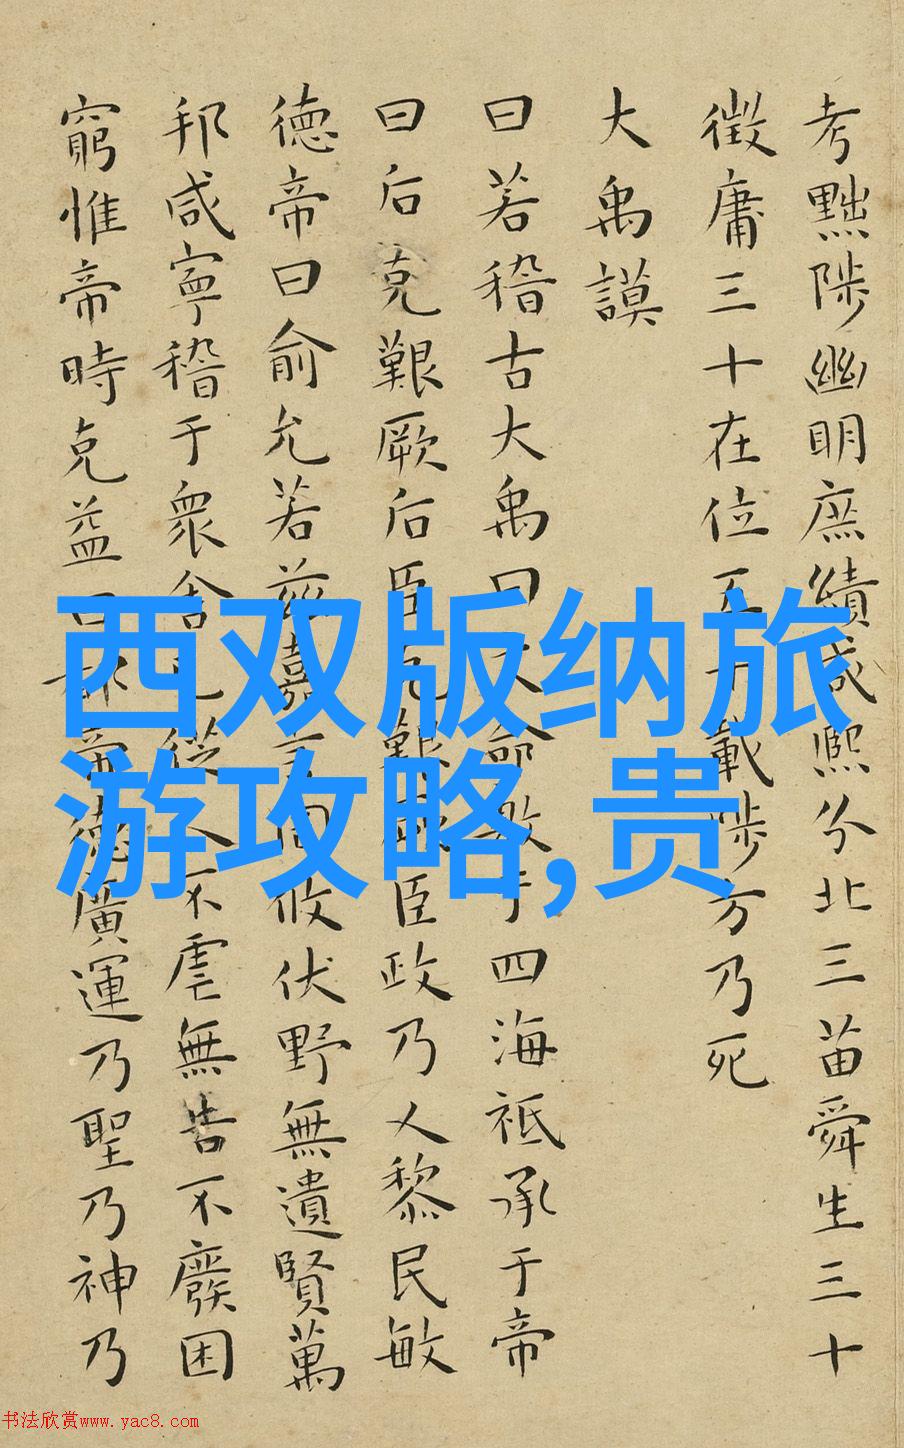 考黜陟幽明庶績咸熙分北三苗舜生三十
徵庸三十在位五十載陟方乃死
大禹謨
曰若稽古大禹曰文命敷于四海祗承于帝
曰后克艱厥后臣克艱厥臣政乃乂黎民敏
德帝曰俞允若茲嘉言罔攸伏野無遺賢萬
邦咸寧稽于衆舍己從人不虐無告不廢困
窮惟帝時克益曰都帝德廣運乃聖乃神乃
西双版纳旅
游攻略,贵
书法欣赏www.yac8.com